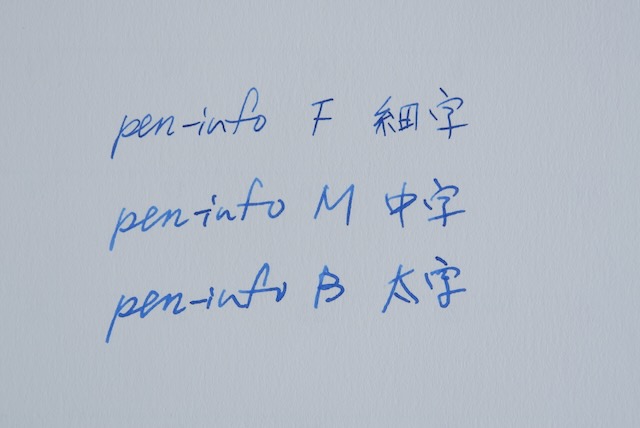 pen-info F 細字
pen-info M 中字
pen-info B 太字